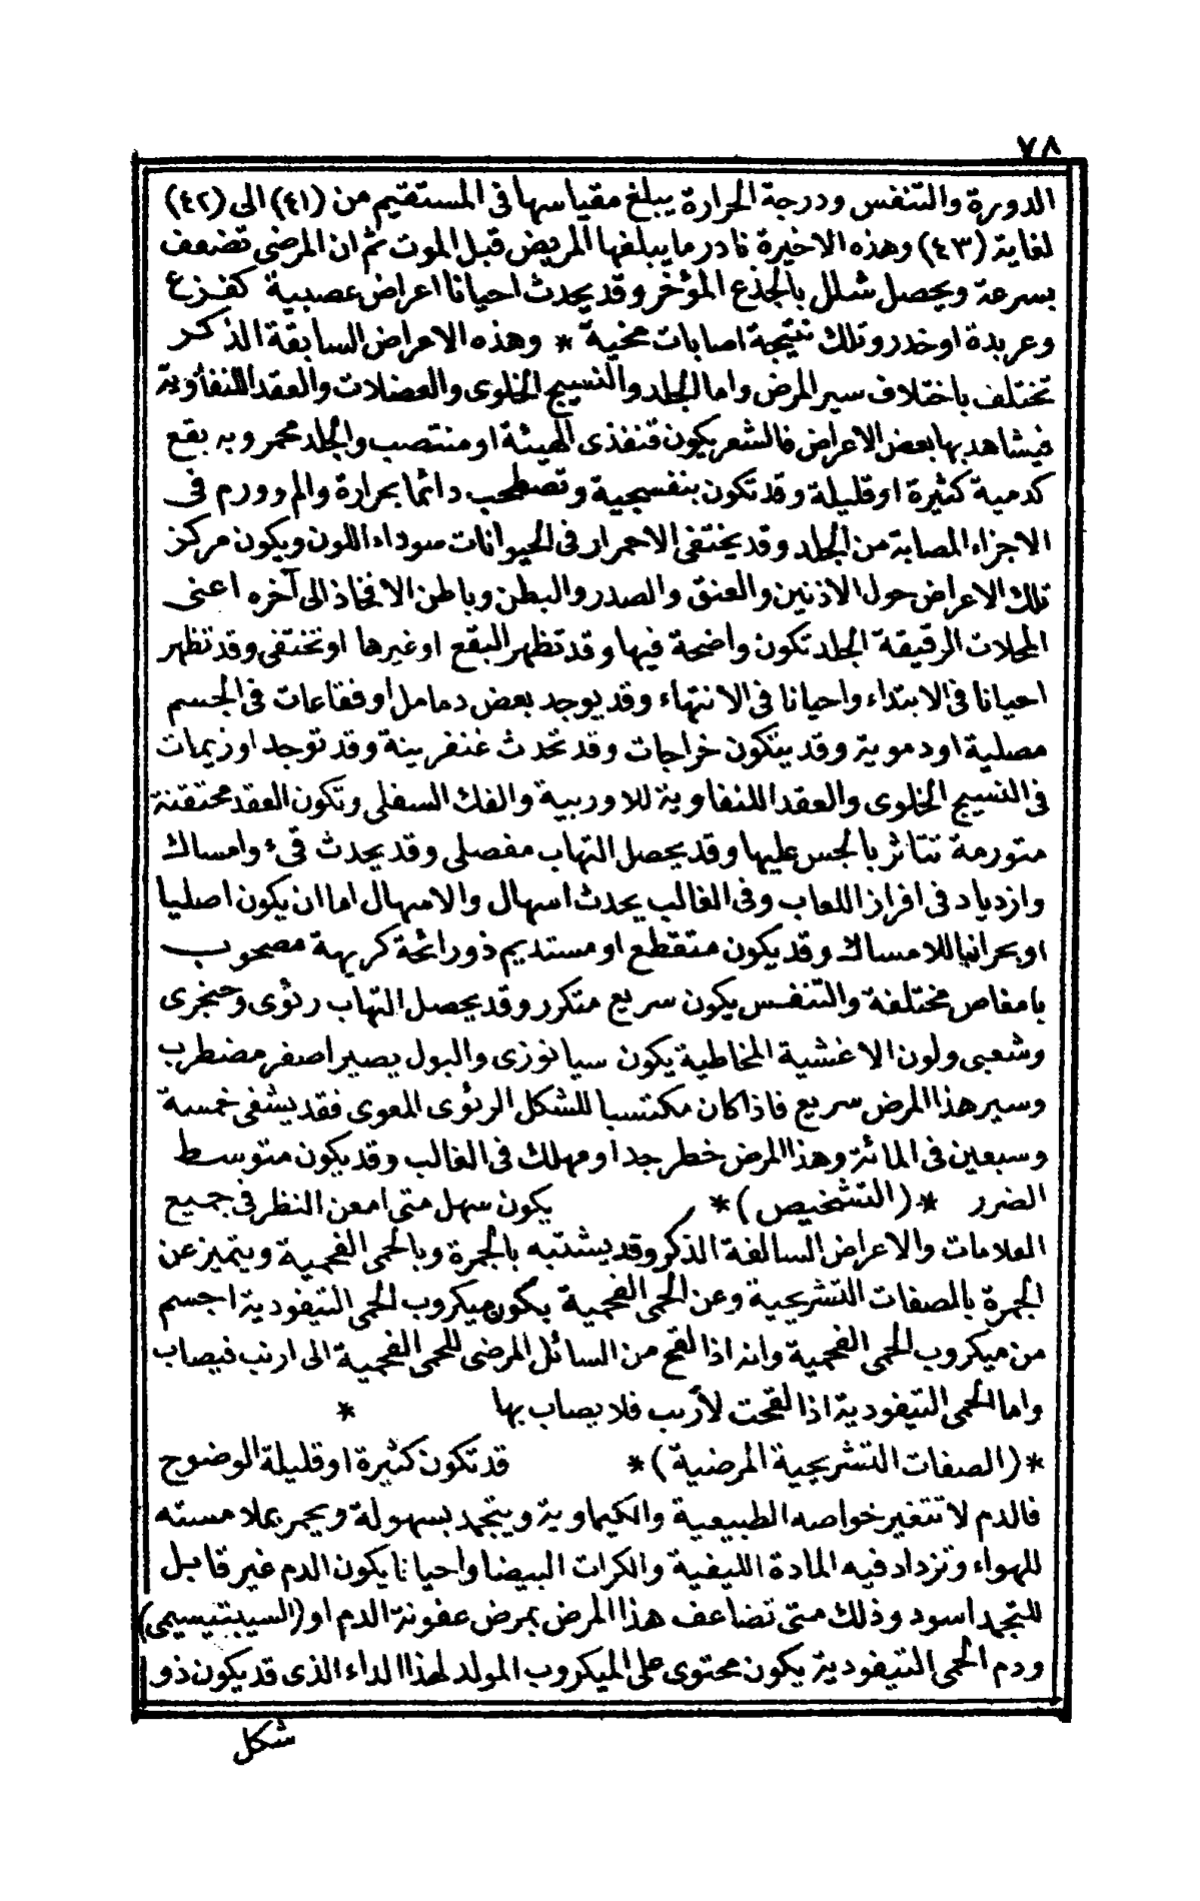 ٧٨
الدورة والتنفس ودرجة الحرارة يبلغ مقياسها فى المستقيم من (٤١) الى (٤٢)
لغاية (٤٣) وهذه الاخيرة نادر ما يبلغها المريض قبل الموت ثم ان المرضى تضعف
بسرعة ويحصل شلل بالجذع المؤخر وقد يحدث احيانا اعراض عصبية كفزع
وعربدة او خدر وتلك نتيجة اصابات مخية * وهذه الاعراض السابقة الذكر
تختلف باختلاف سير المرض واما الجلد والنسيج الخلوى والعضلات والعقد اللنفاوية
فيشاهد بها بعض الاعراض فالشعر يكون قنفذى الهيئة او منتصب والجلد محمر وبه بقع
كدمية كثيرة او قليلة وقد تكون بنفسجية وتصطحب دائما بحرارة والم وورم فى
الاجزاء المصابة من الجلد وقد يختفى الاحمرار فى الحيوانات سوداء اللون ويكون مركز
تلك الاعراض حول الاذنين والعنق والصدر والبطن وباطن الافخاذ الى آخره اعنى
المحلات الرقيقة الجلد تكون واضحة فيها وقد تظهر البقع او غيرها او تختفى وقد تظهر
احيانا فى الابتداء واحيانا فى الانتهاء وقد يوجد بعض دمامل او فقاعات فى الجسم
مصلية او دموية وقد يتكون خراجات وقد تحدث غنغرينة وقد توجد اوزيمات
فى النسيج الخلوى والعقد اللنفاوية للاوربية والفك السفلى وتكون العقد محتقنة
متورمة تتاثر بالجس عليها وقد يحصل التهاب مفصلى وقد يحدث قىء وامساك
وازدياد فى افراز اللعاب وفى الغالب يحدث اسهال والاسهال اما ان يكون اصليا
او بحرانيا للامساك وقد يكون متقطع او مستديم ذو رائحة كريهة مصحوب
بامغاص مختلفة والتنفس يكون سريع متكرر وقد يحصل التهاب رئوى وحنجرى
وشعبى ولون الاغشية المخاطية يكون سيانوزى والبول يصير اصفر مضطرب
وسير هذا المرض سريع فاذا كان مكتسبا للشكل الرئوى المعوى فقد يشفى خمسة
وسبعين فى المائة وهذا المرض خطر جدا ومهلك فى الغالب وقد يكون متوسط
الضرر *(التشخيص)* يكون سهل متى امعن النظر فى جميع
العلامات والاعراض السالفة الذكر وقد يشتبه بالجمرة وبالحمى الفحمية ويتميز عن
الجمرة بالصفات التشريحية وعن الحمى الفحمية بكون ميكروب الحمى التيفودية اجسم
من ميكروب الحمى الفحمية وانه اذا لقح من السائل المرضى للحمى الفحمية الى ارنب فيصاب
واما الحمى التيفودية اذا لقحت لأرنب فلا يصاب بها *
*(الصفات التشريحية المرضية)* قد تكون كثيرة او قليلة الوضوح
فالدم لا تتغير خواصه الطبيعية والكيماوية ويتجمد بسهولة ويحمر بملامسته
للهواء وتزداد فيه المادة الليفية والكرات البيضا واحيانا يكون الدم غير قابل
للتجمد اسود وذلك متى تضاعف هذا المرض بمرض عفونة الدم او (السيبتيسيمى)
ودم الحمى التيفودية يكون محتوى على الميكروب المولد لهذا الداء الذى قد يكون ذو
شكل